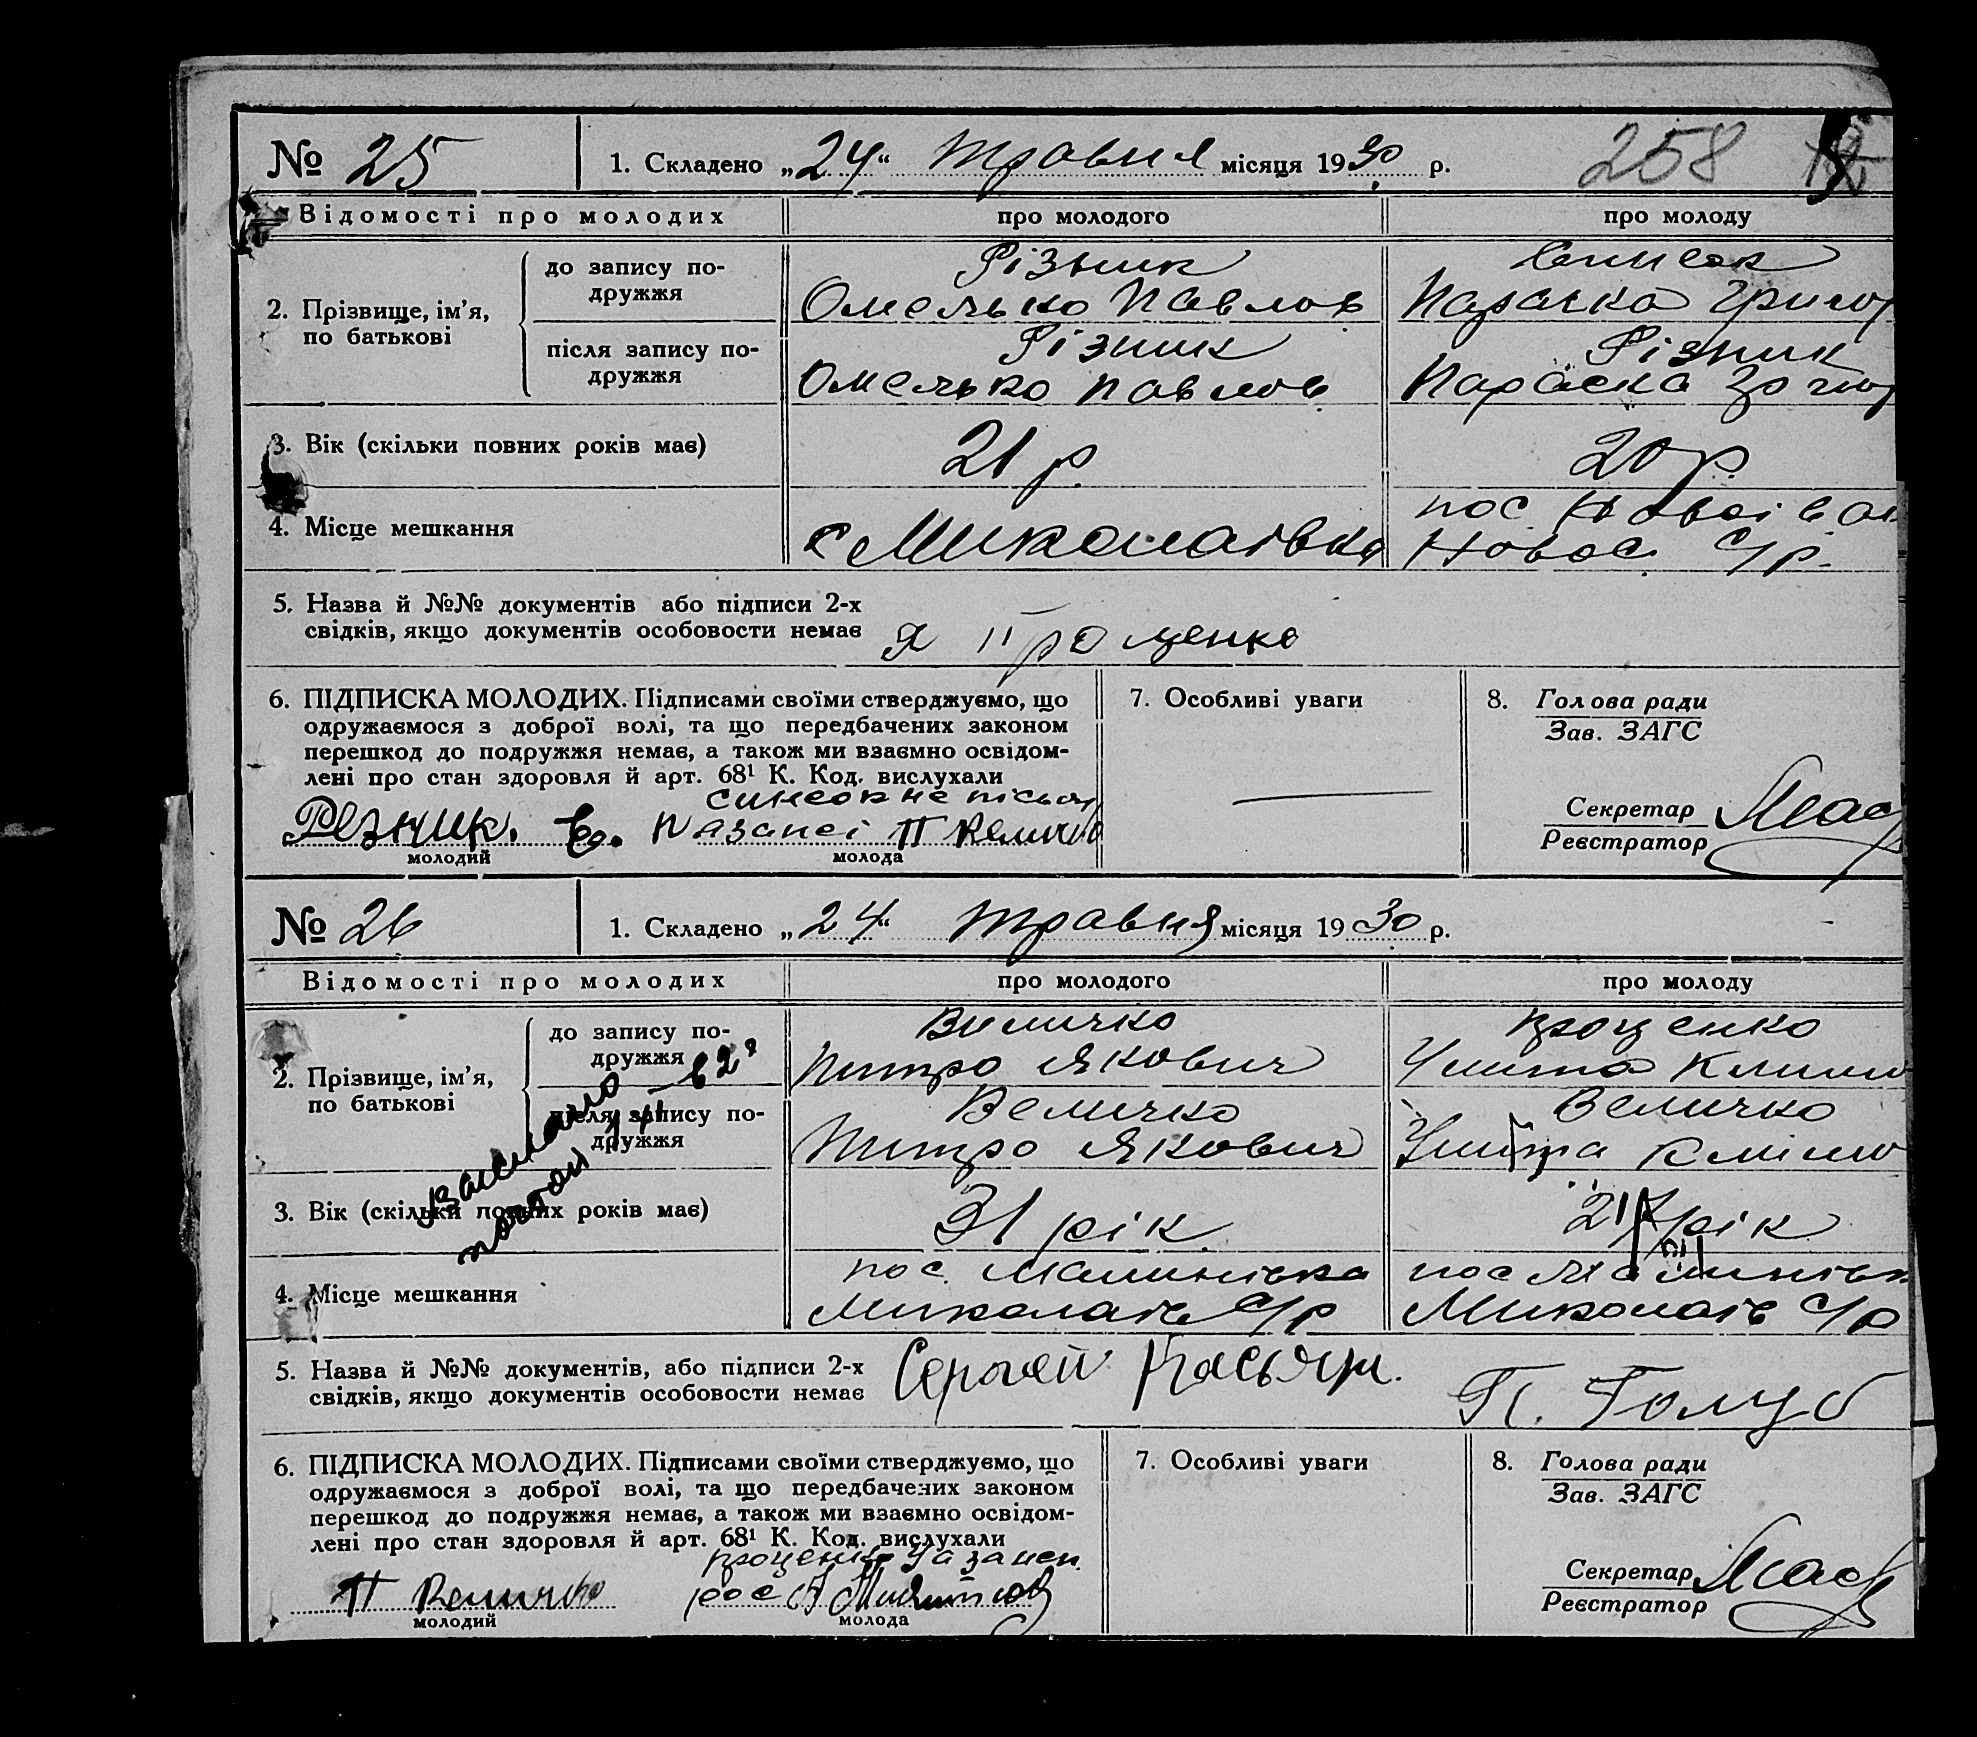 № 25
1. Складено „24“ травня місяця 1930 р.
258
Відомості про молодих
про молодого
про молоду
2. Прізвище, ім’я,
по батькові
до запису по-
дружжя
Різник
Омелько Павлов
Параска Григор
після запису по-
дружжя
Різник
Омелько Павлов
Різник
Параска Григор
3. Вік (скільки повних років має)
21 р.
20 р.
4. Місце мешкання
с Миколаївка
пос.
Новос. С/р.
5. Назва й №№ документів або підписи 2-х
свідків, якщо документів особовости немає
Я Проценко
6. ПІДПИСКА МОЛОДИХ. Підписами своїми стверджуємо, що
одружаємося з доброї волі, та що передбачених законом
перешкод до подружжя немає, а також ми взаємно освідом-
лені про стан здоровля й арт. 68¹ К. Код. вислухали
не письм
Резник. Е.
П Величко
молодий
молода
7. Особливі уваги
8. Голова ради
Зав. ЗАГС
Секретар
Реєстратор
№ 26
1. Складено „24“ травня місяця 1930 р.
Відомості про молодих
про молодого
про молоду
2. Прізвище, ім’я,
по батькові
до запису по-
дружжя
Виличко
Питро Якович
Проценко
Улита Климо
після запису по-
дружжя
Величко
Питро Якович
Величко
Улита Клімо
3. Вік (скільки повних років має)
31 рік
21 рік
4. Місце мешкання
пос. Малинівка
Миколаїв С/р
пос Малинівк
Миколаїв С/р
5. Назва й №№ документів, або підписи 2-х
свідків, якщо документів особовости немає
Сергей Касьян.
П. Голуб
6. ПІДПИСКА МОЛОДИХ. Підписами своїми стверджуємо, що
одружаємося з доброї волі, та що передбачених законом
перешкод до подружжя немає, а також ми взаємно освідом-
лені про стан здоровля й арт. 68¹ К. Код. вислухали
П Величко
молодий
молода
7. Особливі уваги
8. Голова ради
Зав. ЗАГС
Секретар
Реєстратор